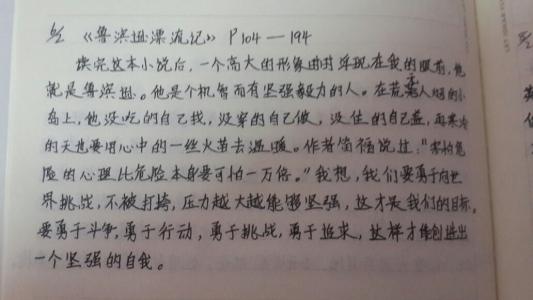 《鲁滨逊漂流记》 P104—194
读完这本小说后，一个高大的形象时时浮现在我的眼前，他
就是鲁滨逊。他是个机智而有坚强毅力的人。在荒无人烟的小
岛上，他没吃的自己找，没穿的自己做，没住的自己盖，再寒冷
的天也要用心中的一丝火苗去温暖。作者笛福说过："害怕危
险的心理比危险本身要可怕一万倍。"我想，我们要勇于向世
界挑战，不被打垮，压力越大越能够坚强，这才是我们的目标，
要勇于斗争，勇于行动，勇于挑战，勇于追求，这样才能创造出
一个坚强的自我。